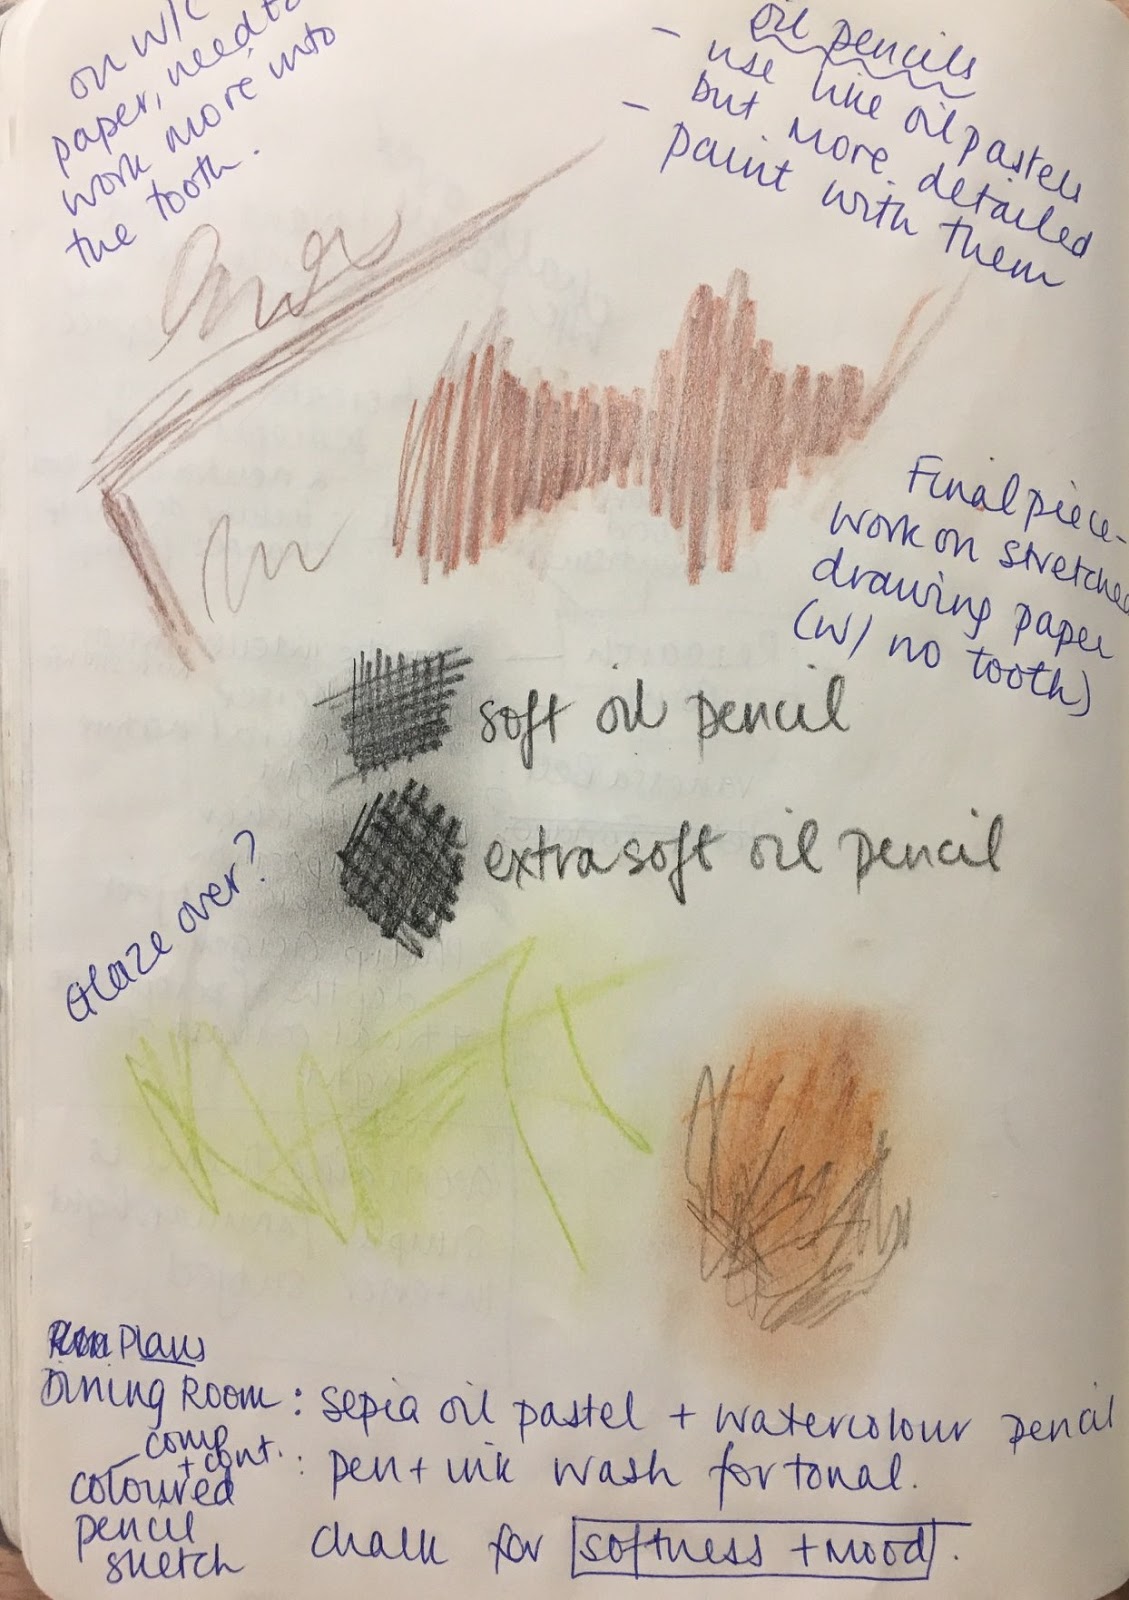 on W/C
paper, need to
work more into
the tooth.
oil pencils
- use like oil pastels
but more detailed
- paint with them
Final piece-
work on stretched
drawing paper
(w/ no tooth)
soft oil pencil
extra soft oil pencil
Glaze over?
Plans
Dining Room : sepia oil pastel + watercolour pencil
comp
+ cont. : pen + ink wash for tonal.
coloured
pencil
sketch
chalk for softness + mood.